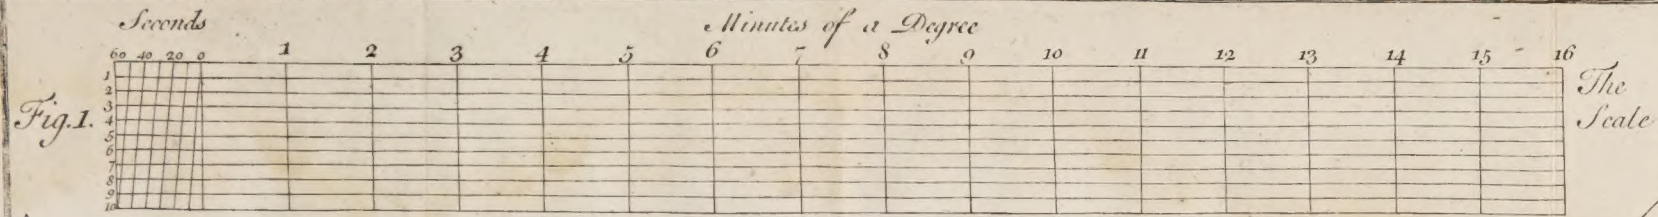 Seconds Minutes of a Degree
60 40 20 0 1 2 3 4 5 6 7 8 9 10 11 12 13 14 15 16
1
2
3
4
5
6
7
8
9
10
Fig. 1.
The
Scale